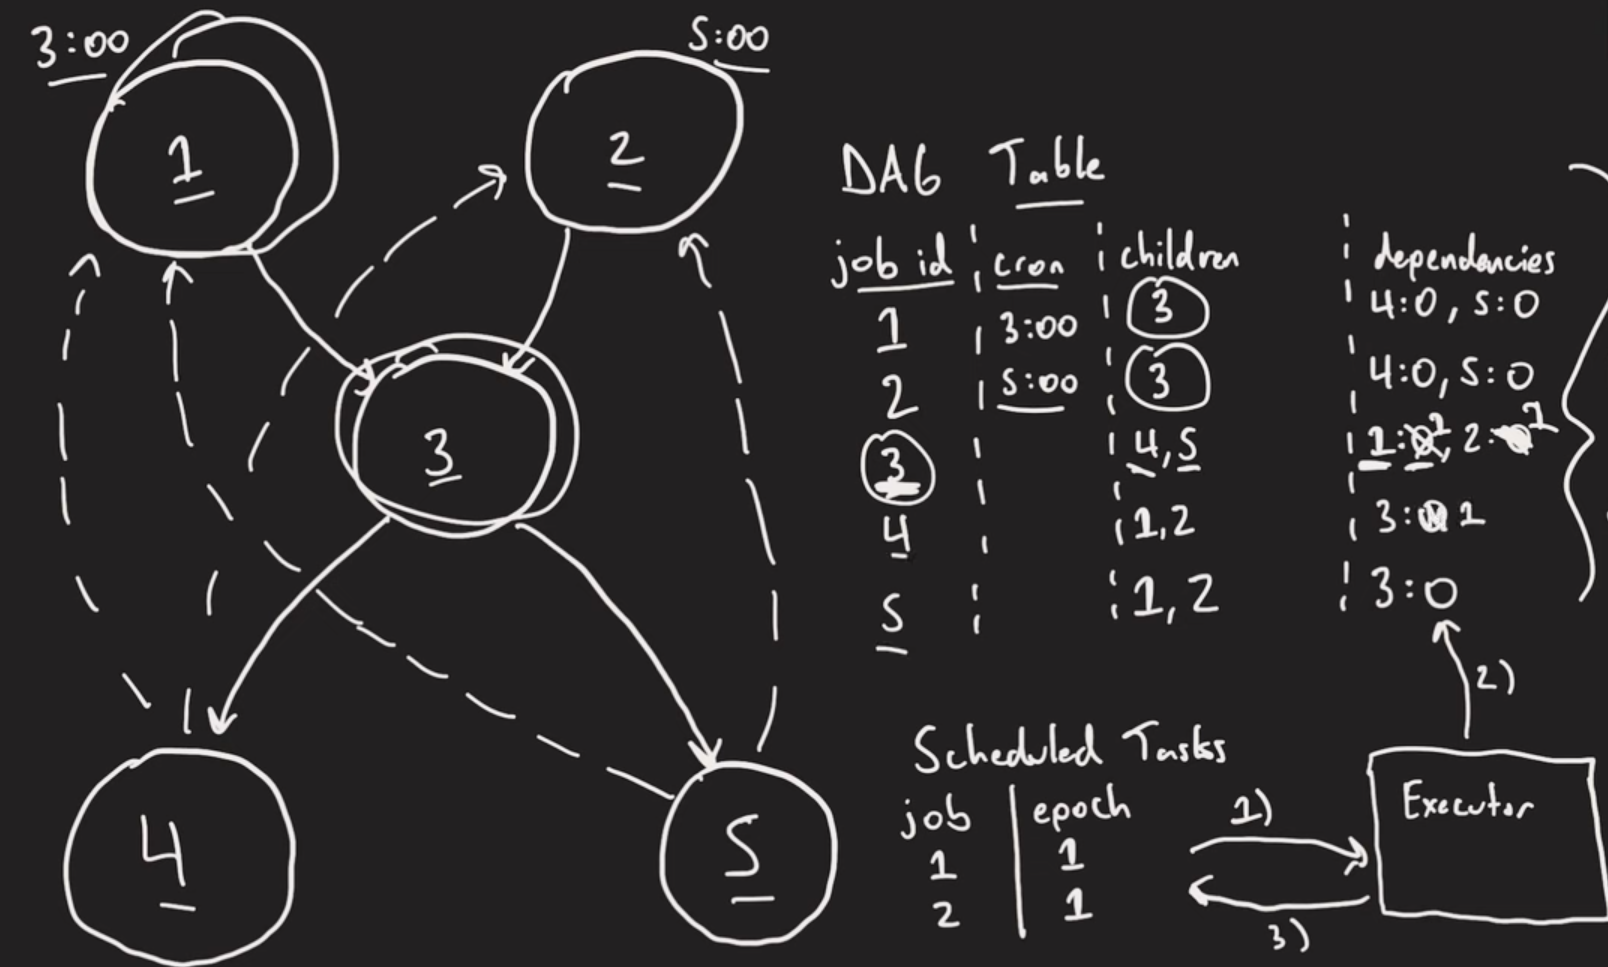 3:00
5:00
1
2
3
4
5
DAG Table
job id cron children dependencies
1 3:00 3 4:0, 5:0
2 5:00 3 4:0, 5:0
3 4,5 1:1, 2:1
4 1,2 3:1
5 1,2 3:0
2)
Scheduled Tasks
job epoch
1 1
2 1
1)
3)
Executor